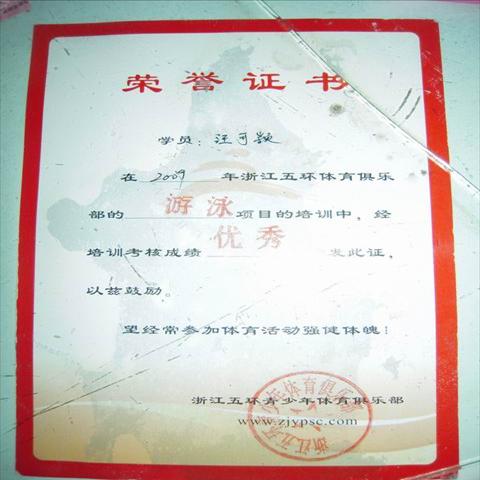 荣誉证书
学员：汪可颖
在 2009 年浙江五环体育俱乐
部的 游泳 项目的培训中，经
培训考核成绩 优秀 发此证，
以兹鼓励。
望经常参加体育活动强健体魄！
浙江五环青少年体育俱乐部
www.zjypsc.com